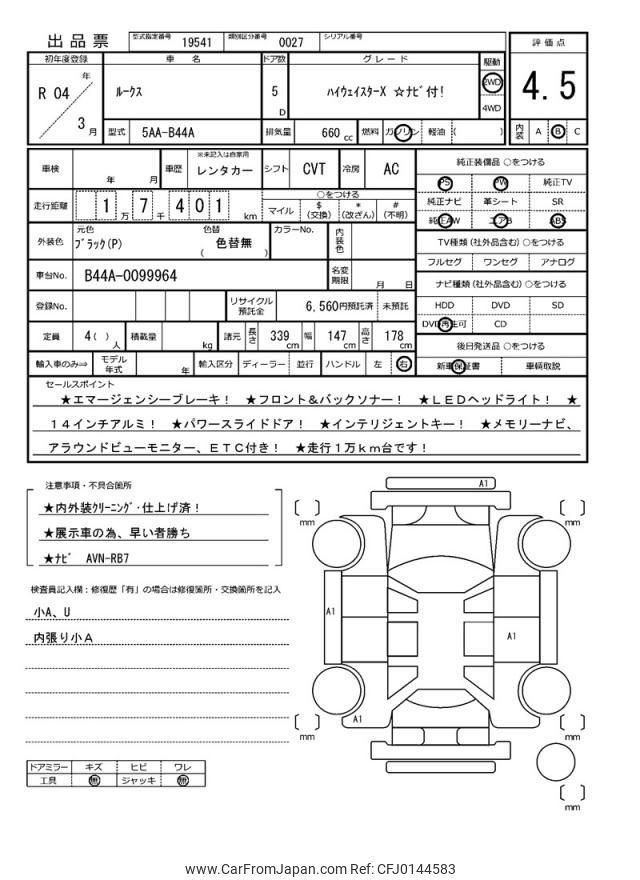 出品票 型式指定番号 19541 類別区分番号 0027 シリアル番号
評価点
4.5
内装 A B C
初年度登録 車名 ドア数 グレード 駆動
R 04 年 3 月
ルークス
5 D
ハイウェイスターX ☆ナビ付!
2WD
4WD
型式 5AA-B44A 排気量 660 cc 燃料 ガソリン 軽油 ( )
車検 年 月 車歴 ※未記入は自家用 レンタカー シフト CVT 冷房 AC
走行距離 1 万 7 千 4 0 1 km
○をつける
マイル $(交換) *(改ざん) #(不明)
外装色 元色 ブラック(P) 色替 ( 色替無 ) カラーNo. 内装色
車台No. B44A-0099964 名変期限 月 日
登録No. リサイクル預託金 6,560円預託済 未預託
定員 4( ) 人 積載量 kg 諸元 長さ 339 cm 幅 147 cm 高さ 178 cm
輸入車のみ⇒ モデル年式 年 輸入区分 ディーラー 並行 ハンドル 左 右
純正装備品 ○をつける
PS PW 純正TV
純正ナビ 革シート SR
純正AW エアB ABS
TV種類(社外品含む)○をつける
フルセグ ワンセグ アナログ
ナビ種類(社外品含む)○をつける
HDD DVD SD
DVD再生可 CD
後日発送品 ○をつける
新車保証書 車輌取説
セールスポイント
★エマージェンシーブレーキ! ★フロント&バックソナー! ★LEDヘッドライト! ★
14インチアルミ! ★パワースライドドア! ★インテリジェントキー! ★メモリーナビ、
アラウンドビューモニター、ETC付き! ★走行1万km台です!
注意事項・不具合箇所
★内外装クリーニング・仕上げ済!
★展示車の為、早い者勝ち
★ナビ AVN-RB7
検査員記入欄:修復歴「有」の場合は修復箇所・交換箇所を記入
小A、U
内張り小A
ドアミラー キズ ヒビ ワレ
工具 無 ジャッキ 無
A1
mm
mm
A1
A1
A1
mm
mm
mm
www.CarFromJapan.com Ref: CFJ0144583